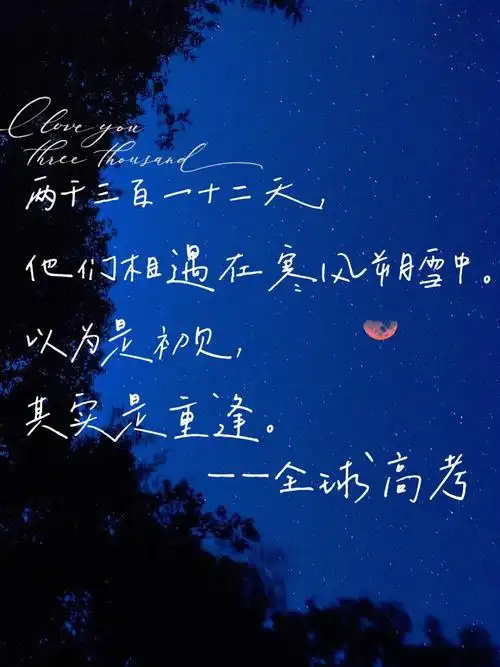 I love you
three thousand
两千三百一十二天,
他们相遇在寒风朔雪中。
以为是初见,
其实是重逢。
——全球高考